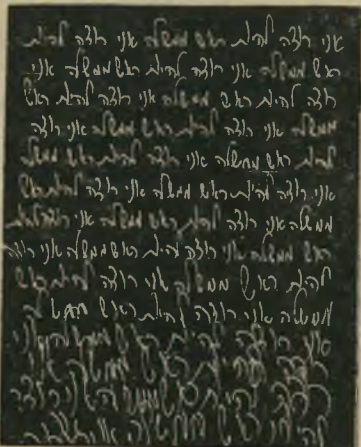 אני רוצה להיות ראש ממשלה אני רוצה להיות
ראש ממשלה אני רוצה להיות ראש ממשלה אני
רוצה להיות ראש ממשלה אני רוצה להיות ראש
ממשלה אני רוצה להיות ראש ממשלה אני רוצה
להיות ראש ממשלה אני רוצה להיות ראש ממשלה
אני רוצה להיות ראש ממשלה אני רוצה להיות ראש
ממשלה אני רוצה להיות ראש ממשלה אני רוצה להיות
ראש ממשלה אני רוצה להיות ראש ממשלה אני רוצה
להיות ראש ממשלה אני רוצה להיות ראש
ממשלה אני רוצה להיות ראש
אני רוצה להיות ראש